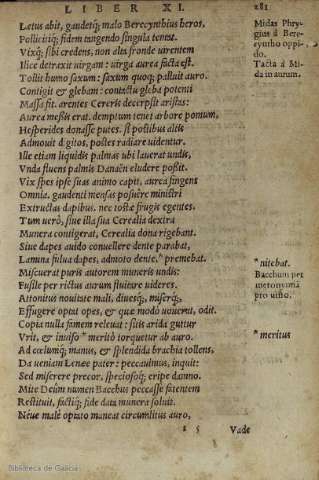 LIBER XI. 281
Letus abit, gaudetq; malo Berecynthius heros,
Pollicitiq; fidem tangendo singula tentat.
Vixq; sibi credens, non alta fronde uirentem
Ilice detraxit uirgam: uirga aurea facta est.
Tollit humo saxum: saxum quoq; palluit auro.
Contigit & glebam: contactu gleba potenti
Massa fit. arentes Cereris decerpsit aristas:
Aurea messis erat. demptum tenet arbore pomum,
Hesperides donasse putes. si postibus altis
Admouit digitos, postes radiare uidentur.
Ille etiam liquidis palmas ubi lauerat undis,
Vnda fluens palmis Danaën eludere poßit.
Vix spes ipse suas animo capit, aurea fingens
Omnia. gaudenti mensas posuere ministri
Extructas dapibus, nec tostæ frugis egentes.
Tum uerò, siue illa sua Cerealia dextra
Munera contigerat, Cerealia dona rigebant.
Siue dapes auido conuellere dente parabat,
Lamina fulua dapes, admoto dente,* premebat.
Miscuerat puris autorem muneris undis:
Fusile per rictus aurum fluitare uideres.
Attonitus nouitate mali, diuesq́;, miserq́;,
Effugere optat opes, & quæ modò uouerat, odit.
Copia nulla famem releuat: sitis arida guttur
Vrit, & inuiso * meritò torquetur ab auro.
Ad cœlumq́; manus, & splendida brachia tollens,
Da ueniam Lenæe pater: peccauimus, inquit:
Sed miserere precor, speciosoq́; eripe damno.
Mite Deûm numen Bacchus peccasse fatentem
Restituit, factiq́; fide data munera soluit.
Néue male optato maneat circumlitus auro,
s 5 Vade
Midas Phry-
gius à Bere-
cyntho oppi-
do.
Tacta à Mi-
da in aurum.
* nitebat.
Bacchum per
metonymiã
pro uino.
* meritus
Biblioteca de Galicia